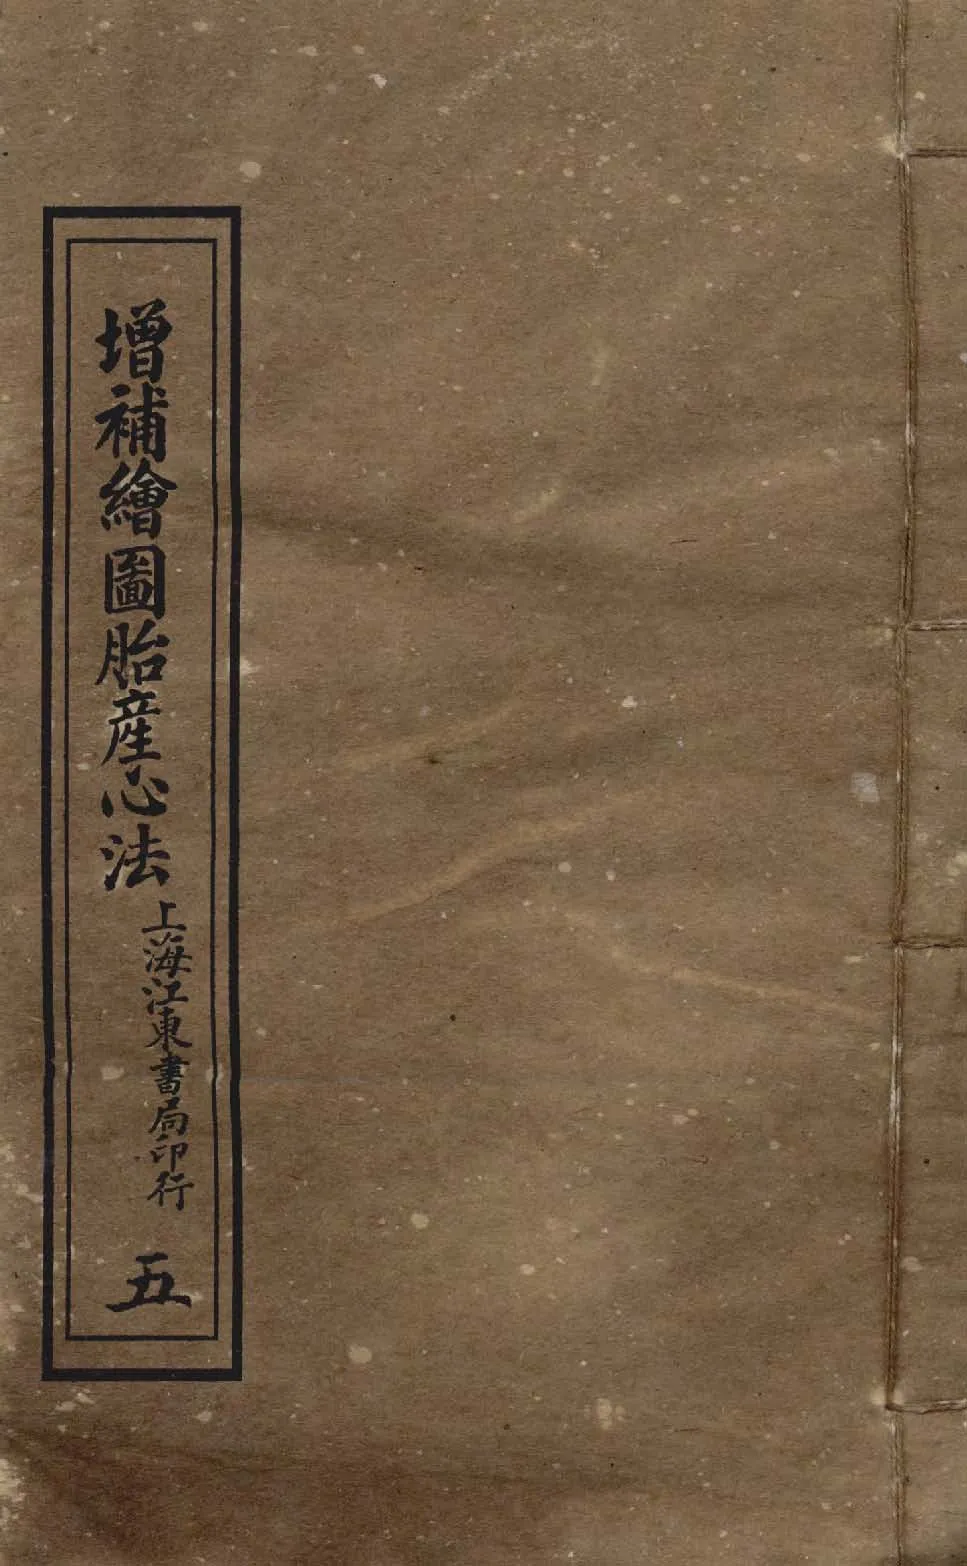 增補繪圖胎產心法
上海江東書局印行
五